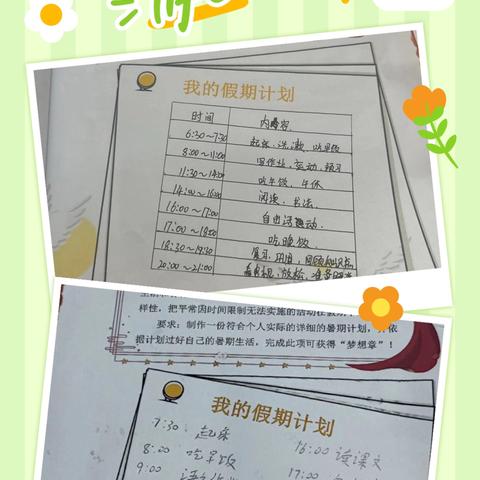 我的假期计划
时间 内容
6:30~7:30 起床、洗漱、吃早饭
8:00~11:00 写作业、运动、预习
11:30~14:00 吃午饭、午休
14:00~16:00 阅读、书法
16:00~17:00 自由活动
17:00~18:00 吃晚饭
18:30~19:30 复习、巩固、回顾知识点
20:00~21:00 看电视、放松、准备
样性，把平常因时间限制无法实施的活动在假期
要求：制作一份符合个人实际的详细的暑期计划，并依
据计划过好自己的暑期生活，完成此项可获得“梦想章”！
我的假期计划
7:30 起床
16:00 读课文
8:00 吃早饭
17:00
9:00